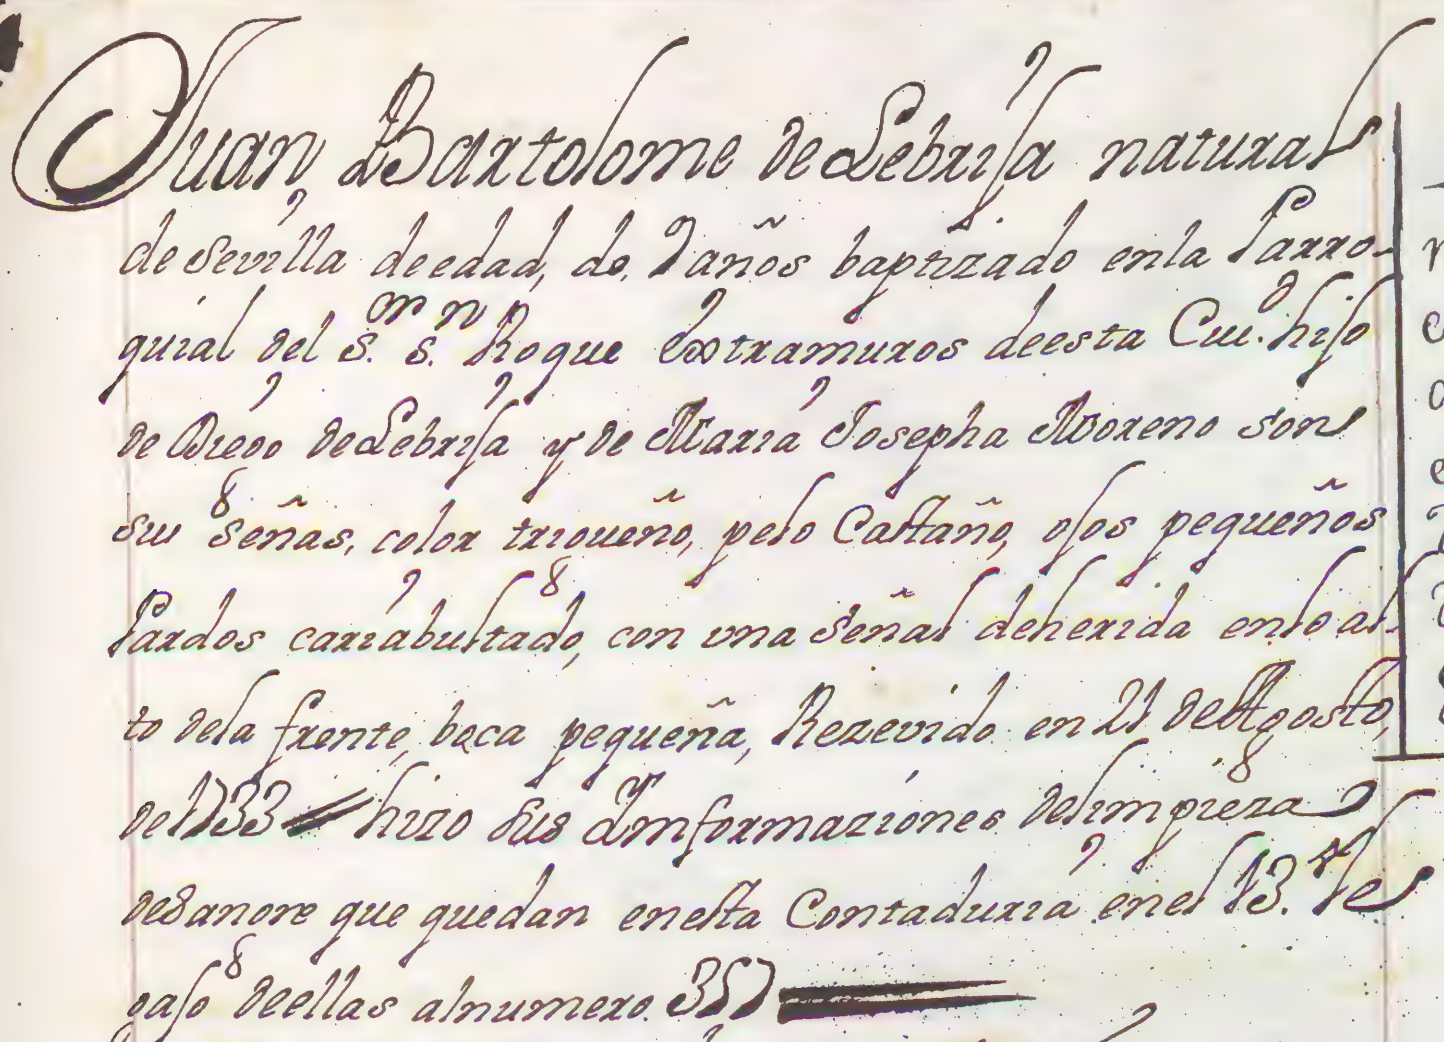 Juan Bartolome de Lebrija natural
de Sevilla de edad, de, 9 años baptizado en la Parro-
quial del S.or S.n Roque Extramuros de esta Ciu.d hijo
de Diego de Lebrija y de Maria Josepha Moreno son
sus señas, color trigueño, pelo Castaño, ojos pequeños
Pardos cariabultado, con una señal de herida en lo al-
to de la frente, boca pequeña, Rezevido en 21 de Agosto,
de 1733 hizo sus Imformaziones de limpieza
de sangre que quedan en esta Contaduria en el 13.
gajo de ellas al numero 357